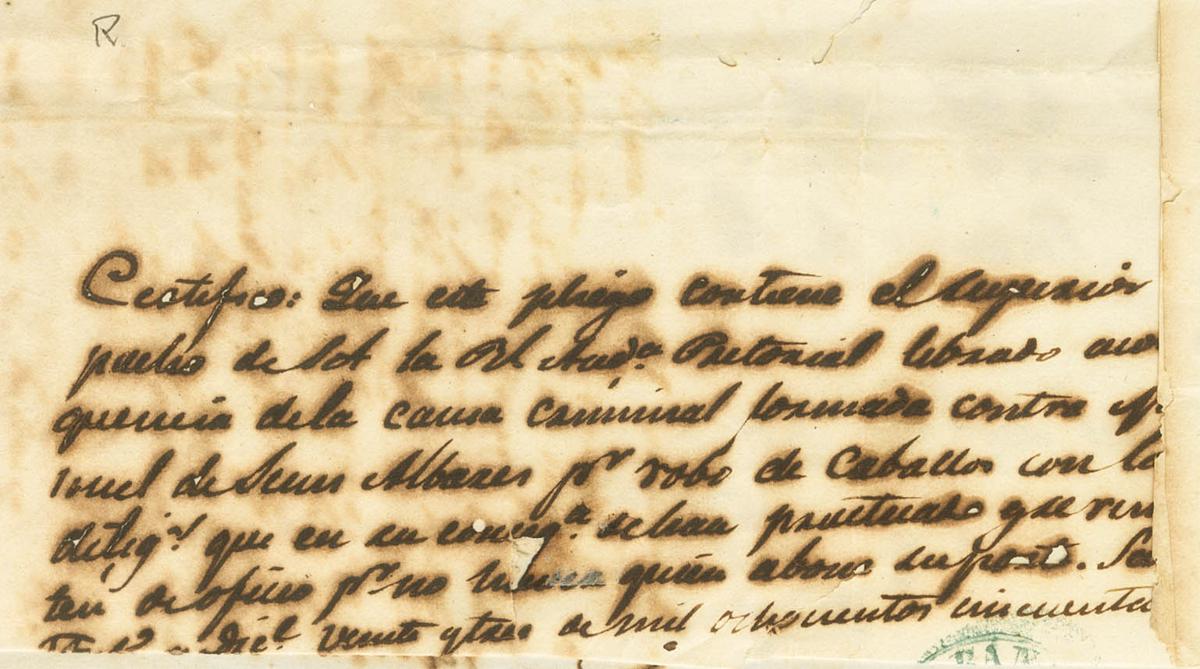 R.
Certifico: Que este pliego contiene el Superior
pacho de S.A. la Rl Aud.ª Pretorial librado
quencia dela causa criminal formada contra
nuel de Jesus Albares pr robo de Caballos con la
dilig.s que en su conseq.ª se han practicado y se remi
ten de oficio pr no quien abone su porte. Sa
Dic.e veinte y tres de mil ochocientos cincuenta